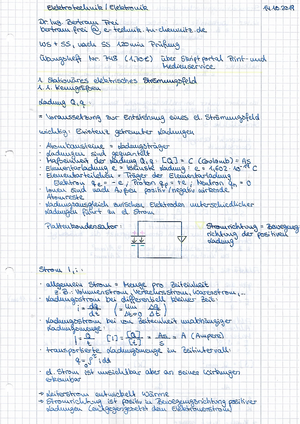 Elektrotechnik / Elektronik
14.10.2019
Dr. Ing. Bertram Frei
bertram.frei @ e-technik.tu-chemnitz.de
WS + SS, nach SS 120 min Prüfung
Übungsheft Nr. (1,70€) über Skriptportal Print- und
Medienservice
1. Stationäres elektrisches Strömungsfeld
1.1. Kenngrößen
Ladung Q, q:
= Voraussetzung zur Entstehung eines el. Strömungsfeld
wichtig: Existenz getrennter Ladungen
Atombausteine = Ladungsträger
Ladungen sind gequantelt
Maßeinheit der Ladung Q, q: [Q] = C (Coulomb) = As
Elementarladung e = kleinste Ladung: e = 1,602 · 10⁻¹⁹ C
Elementarteilchen = Träger der Elementarladung
Elektron qe = -e ; Proton qp = +e ; Neutron qn = 0
Ionen sind auch positiv/negativ
Atomreste
Ladungsausgleich zwischen Elektroden unterschiedlicher
Ladungen führt zu el. Strom
Plattenkondensator:
Stromrichtung = Bewegungs
richtung der positiven
Ladung
Strom I, i:
allgemein Strom = Menge pro Zeiteinheit
z.B. Volumenstrom, Verkehrsstrom, Warenstrom, ...
Ladungsstrom bei differentiell kleiner Zeit:
i = dq/dt (= lim Δt→0 ΔQ/Δt)
Ladungsstrom bei von Zeiteinheit unabhängiger
Ladungsmenge:
I = Q/t [I] = [Q]/[t] = As/s = A (Ampere)
transportierte Ladungsmenge im Zeitintervall:
q = ∫ i dt
el. Strom ist unsichtbar aber an seinen Wirkungen
erkennbar
→ Leiterstrom entwickelt Wärme
Stromrichtung ist positiv in Bewegungsrichtung positiver
Ladungen (entgegengesetzt dem Elektronenstrom)